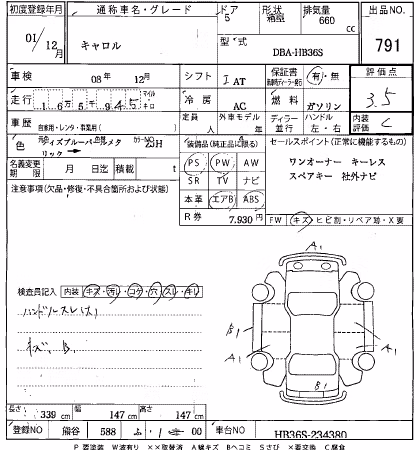 初度登録年月 通称車名・グレード ドア 形状 排気量 出品NO.
01/12月 キャロル 5 箱型 660 cc 791
型式 DBA-HB36S
車検 08年 12月 シフト I AT 保証書 有・無 評価点
走行 165945 マイル キロ 冷房 AC 燃料 ガソリン 3.5
車歴 自家用・レンタ・事業用( ) 定員 人 外車モデル 年 ディーラー 並行 ハンドル 左・右 内装評価 C
色 カラーNO ZJH
装備品(純正品に限る) セールスポイント(正常に機能するもの)
名義変更期限 月 日迄 積載 t
PS PW AW ワンオーナー キーレス
SR TV ナビ スペアキー 社外ナビ
注意事項(欠品・修復・不具合箇所および状態)
本革 エアB ABS
R券 7,930円 FW キズ ヒビ割・リペア跡・X要
A1
検査員記入 内装 キズ・汚・コゲ・穴 スレ・キレ
ハンドルスレ
B1
A1 A1
B1
長さ 339 cm 幅 147 cm 高さ 147 cm
登録NO 熊谷 588 ふ・1 00 車台NO HB36S-234380
P要塗装 W波有り ××取替済 A線キズ Bヘコミ Sさび ×要交換 C腐食